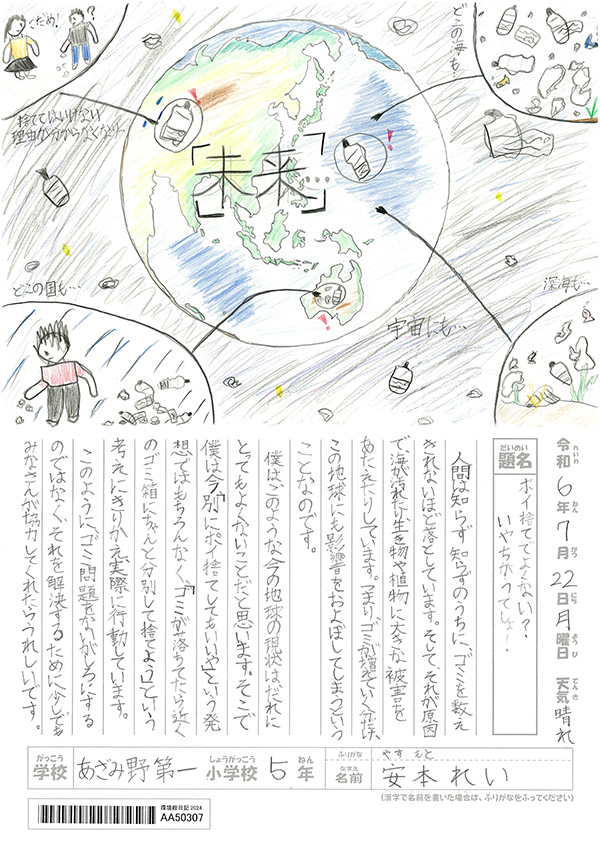 くだめ!
?
捨ててはいけない
理由が分からなくなり…
どこの海も…
「未来…」
どこの国も…
宇宙にも…
深海も…
令和6年7月22日月曜日 天気 晴れ
れいわ ねん がつ にち ようび てんき
だいめい
題名
ポイ捨てでよくない?
いやちがうでしょ!
人間は知らず知らずのうちに、ゴミを数え
きれないほど落としています。そして、それが原因
で、海が汚れたり生き物や植物に大きな被害を
あたえたりしています。つまりゴミが増えていく分だけ、
この地球にも影響をおよぼしてしまうという
ことなのです。
僕はこのような今の地球の現状はだれに
とってもよくないことだと思います。そこで
僕は今、「別にポイ捨てしてもいいや」という発
想ではもちろんなく、「ゴミが落ちてたら近く
のゴミ箱にちゃんと分別して捨てよう」という
考えにきりかえ実際に行動しています。
このように、ゴミ問題をないがしろにする
のではなく、それを解決するために少しでも
みなさんが協力してくれたらうれしいです。
がっこう しょうがっこう ねん ふりがな やすもと
学校 あざみ野第一 小学校 5 年 なまえ 名前 安本れい
(漢字で名前を書いた場合は、ふりがなをふってください)
環境絵日記 2024
AA50307